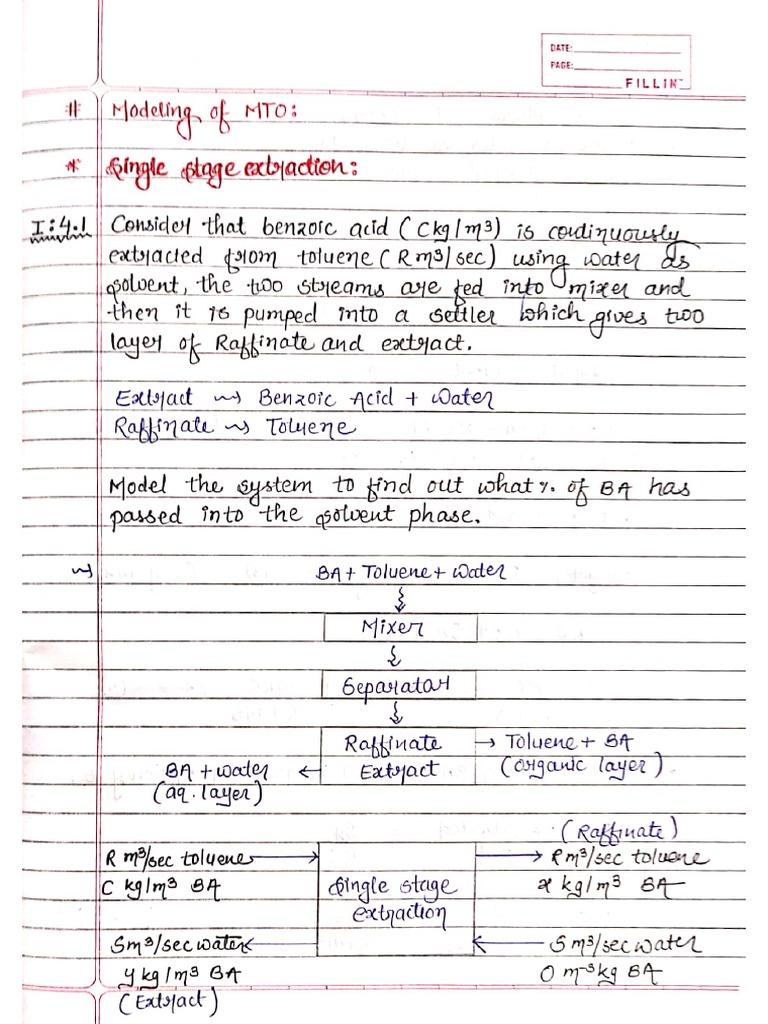 DATE:
PAGE:
FILLIN
# Modeling of MTO:
* Single stage extraction:
I:4.1 Consider that benzoic acid (C kg/m³) is continuously
extracted from toluene (R m³/sec) using water as
solvent, the two streams are fed into mixer and
then it is pumped into a settler which gives two
layer of Raffinate and extract.
Extract ⇝ Benzoic Acid + Water
Raffinate ⇝ Toluene
Model the system to find out what % of BA has
passed into the solvent phase.
⇝ BA + Toluene + Water
Mixer
Separator
Raffinate → Toluene + BA
BA + water ← Extract (organic layer)
(aq. layer)
(Raffinate)
R m³/sec toluene → → R m³/sec toluene
C kg/m³ BA Single stage x kg/m³ BA
extraction
S m³/sec water ← ← S m³/sec water
y kg/m³ BA O m⁻³kg BA
(Extract)